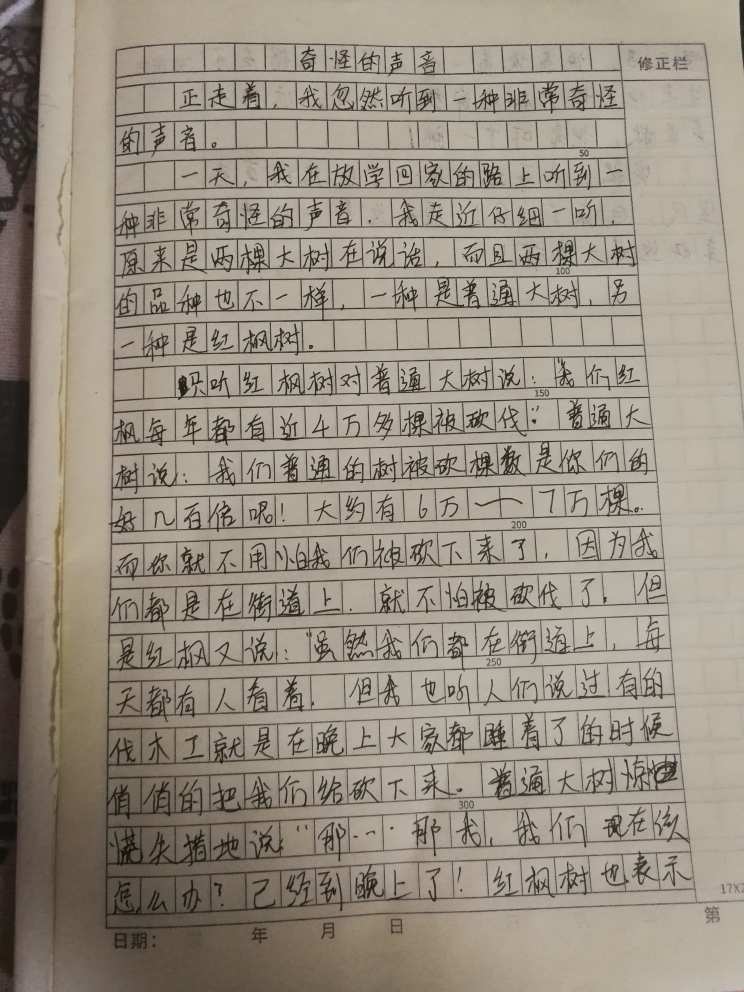 奇怪的声音
修正栏
正走着，我忽然听到一种非常奇怪
的声音。
50
一天，我在放学回家的路上听到一
种非常奇怪的声音，我走近仔细一听，
原来是两棵大树在说话，而且两棵大树
100
的品种也不一样，一种是普通大树，另
一种是红枫树。
只听红枫树对普通大树说：“我们红
150
枫每年都有近4万多棵被砍伐。”普通大
树说：我们普通的树被砍棵数是你们的
好几百倍呢！大约有6万——7万棵。
200
而你就不用怕我们被砍下来了，因为我
们都是在街道上，就不怕被砍伐了。但
是红枫又说：“虽然我们都在街道上，每
250
天都有人看着，但我也听人们说过有的
伐木工就是在晚上大家都睡着了的时候
俏俏的把我们给砍下来。普通大树惊
300
慌失措地说：“那…那我，我们现在该
怎么办？已经到晚上了！红枫树也表示
17X2
日期： 年 月 日
第